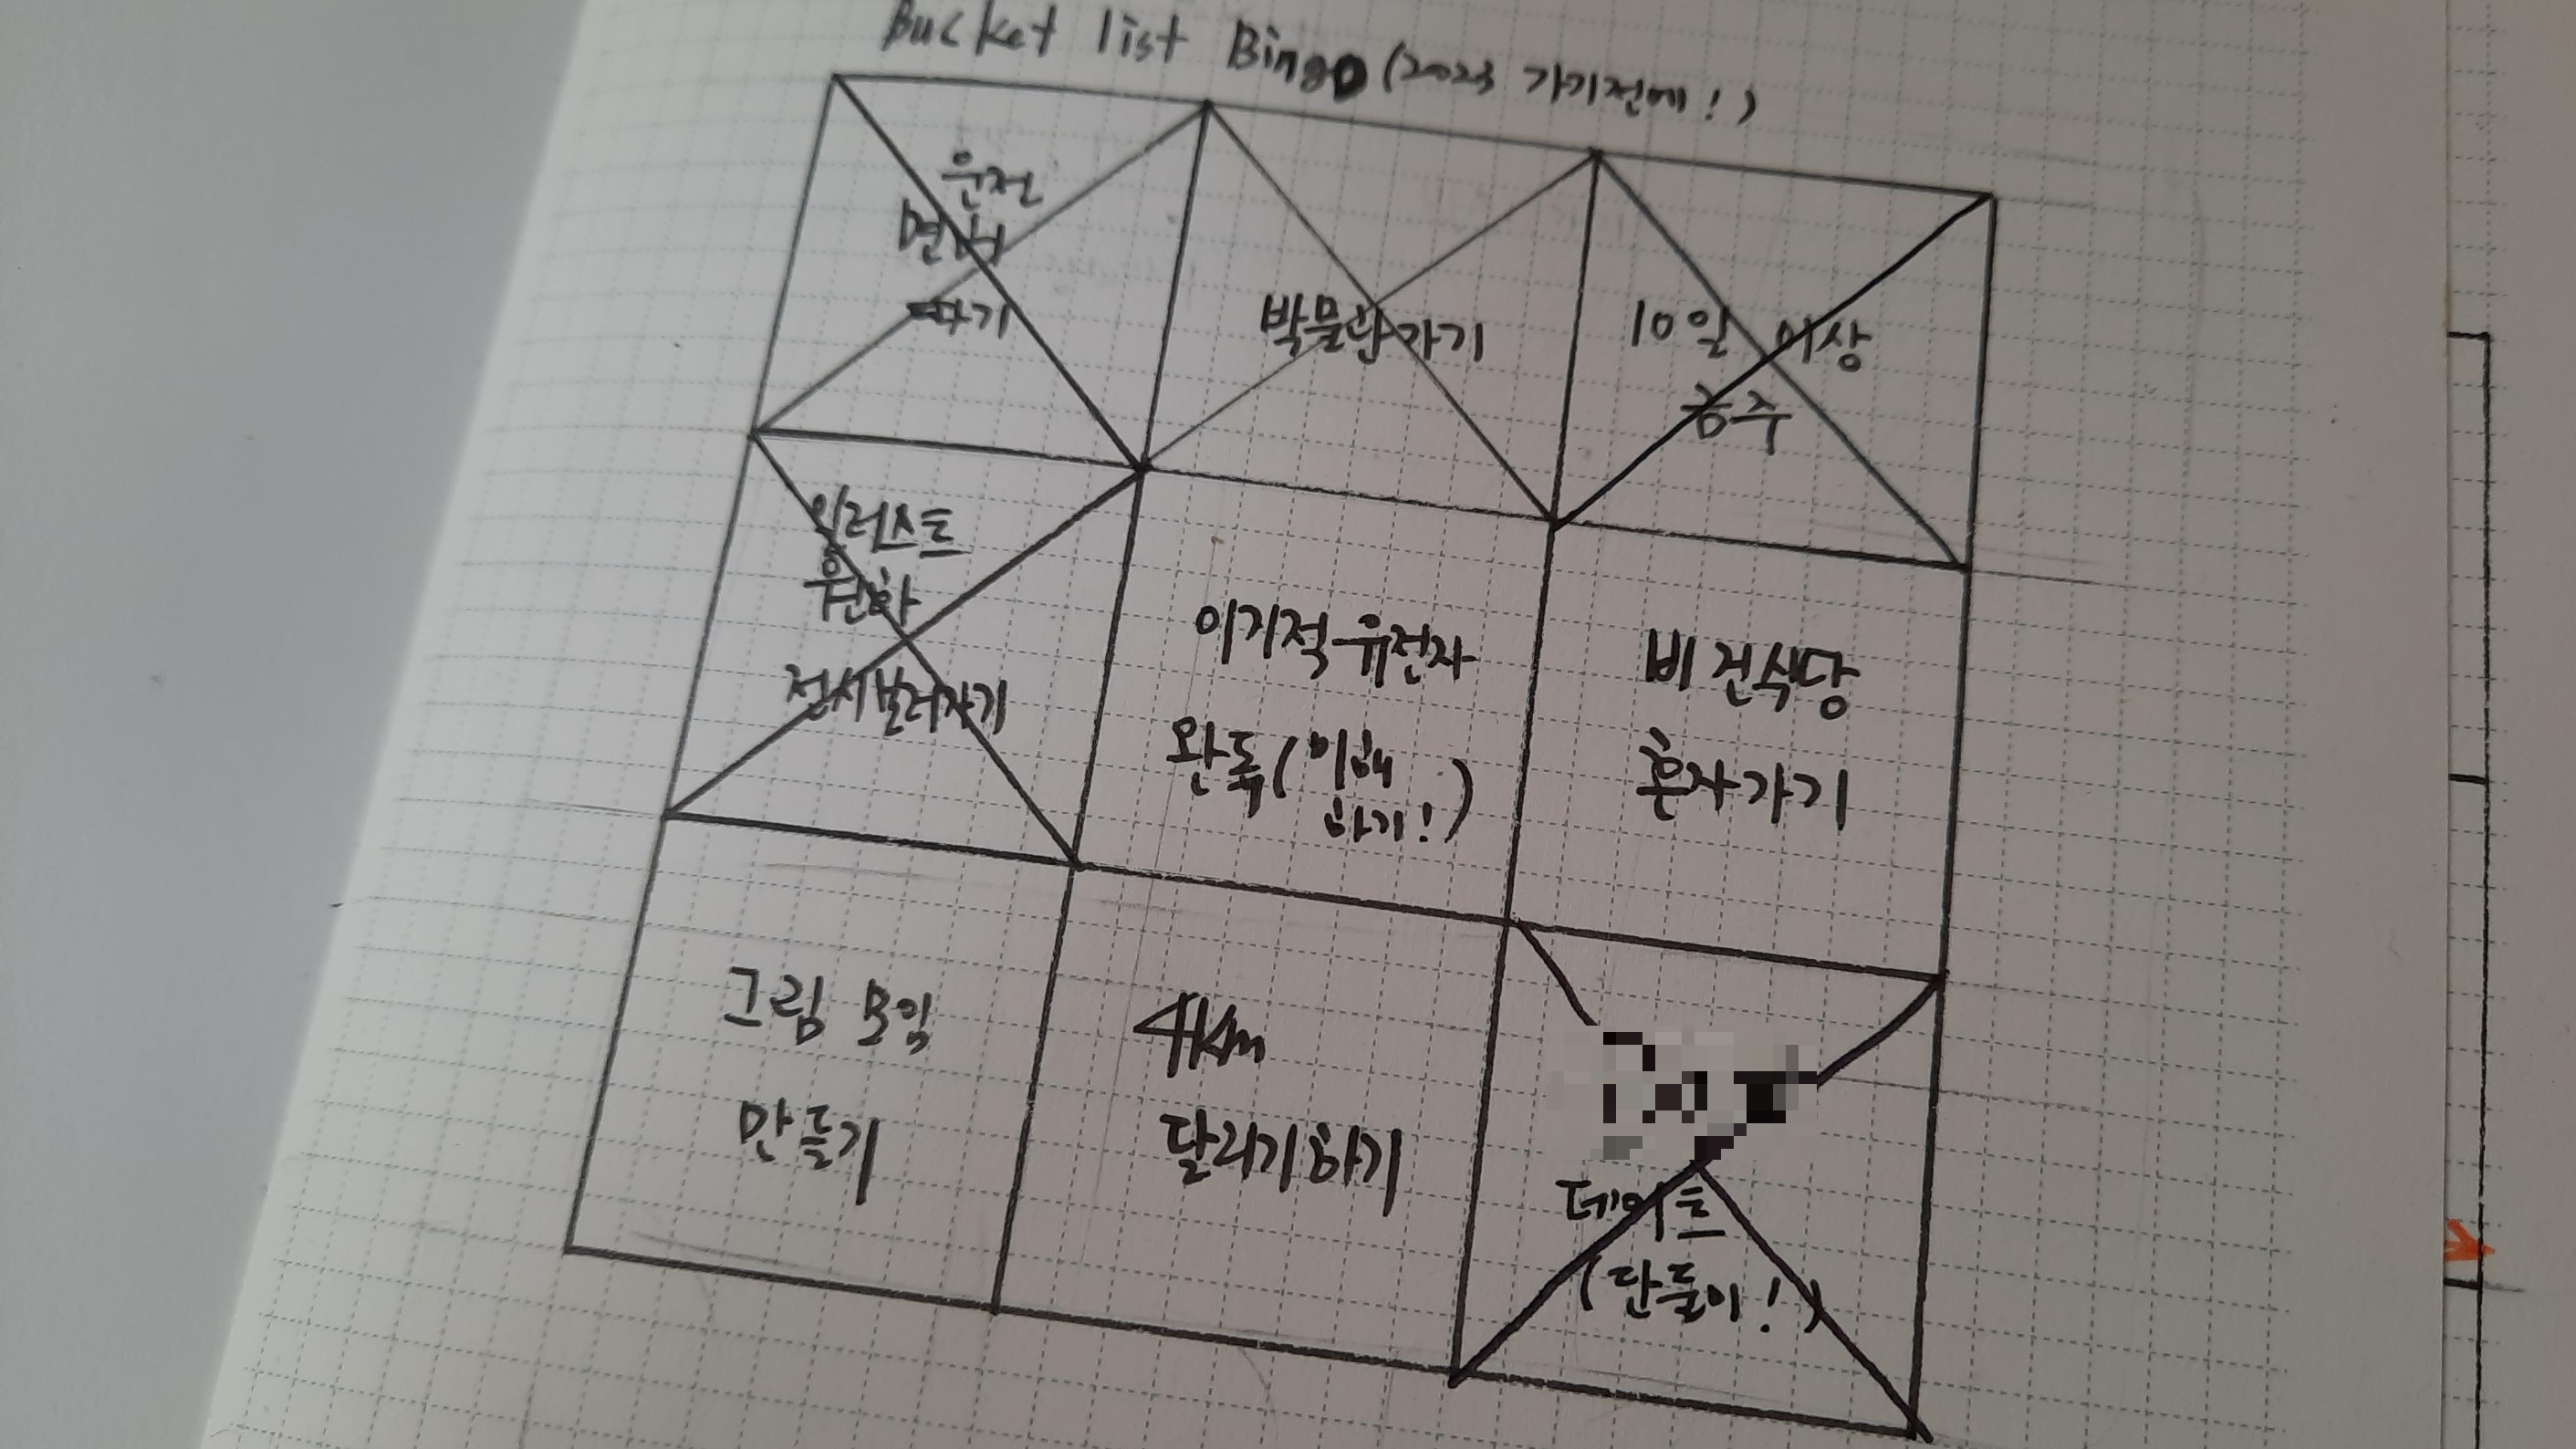 Bucket list Bingo (2023 가기전에!)
운전
면허
따기
박물관 가기
10일 이상
금주
일러스트
원화
전시보러가기
이기적 유전자
완독 (이해
하기!)
비건식당
혼자가기
그림 모임
만들기
4km
달리기하기
데이트
(단둘이!)